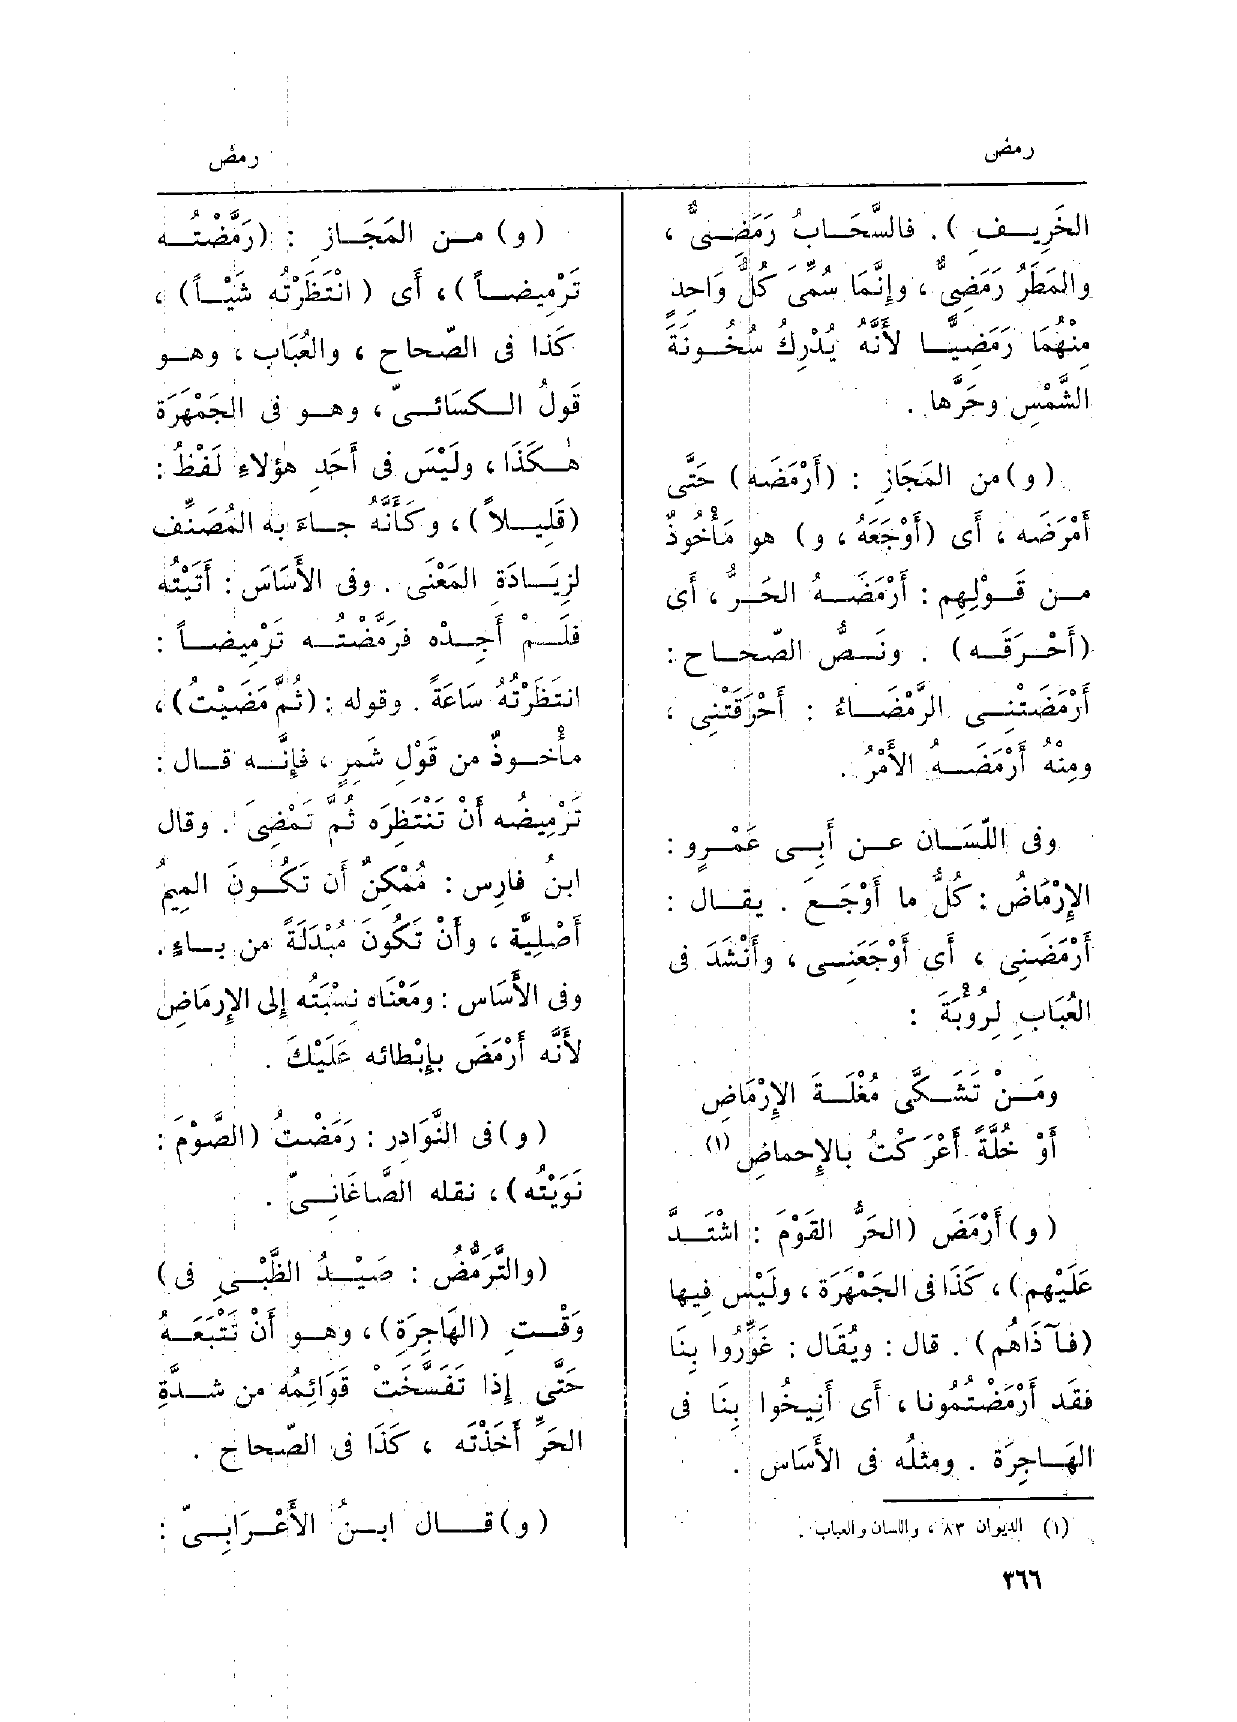 رمض
رمض
الخَرِيـفِ ). فالسَّحَابُ رَمَضِىٌّ ،
والمَطَرُ رَمَضِىٌّ ، وإِنَّمَا سُمِّىَ كُلُّ وَاحِدٍ
مِنْهُمَا رَمَضِيًّا لأَنَّهُ يُدْرِكُ سُخُونَةَ
الشَّمْسِ وحَرَّها .
(و) من المَجَازِ : (أَرْمَضَه) حَتَّى
أَمْرَضَه ، أَى (أَوْجَعَهُ ، و) هو مَأْخُوذٌ
مـن قَـوْلِهِم : أَرْمَضَـهُ الحَـرُّ ، أَى
(أَحْـرَقَـه) . ونَـصُّ الصّحـاحِ :
أَرْمَضَتْنِـى الرَّمْضَـاءُ : أَحْرَقَتْنِى ،
ومِنْهُ أَرْمَضَـهُ الأَمْرُ .
وفى اللّسَـانِ عـن أَبِـى عَمْـرٍو :
الإِرْمَاضُ : كُلُّ ما أَوْجَـعَ . يقـال :
أَرْمَضَنِى ، أَى أَوْجَعَنِـى ، وأَنْشَدَ فى
العُبَابِ لِرُؤْبَةَ :
ومَـنْ تَشَـكَّى مُغْلَـةَ الإِرْمَاضِ
أَوْ خُلَّةً أَعْرَكْتُ بالإِحماضِ (١)
(و) أَرْمَضَ (الحَرُّ القَوْمَ : اشْتَـدَّ
عَلَيْهِم) ، كَذَا فى الجَمْهَرَة ، ولَيْسَ فِيها
(فـآذَاهُم) . قال : ويُقَال : غَوِّرُوا بِنَا
فقَد أَرْمَضْتُمُونا ، أَى أَنِيخُوا بِنَا فى
الهَـاجِرَة . ومثلُه فى الأَسَاس .
(١) الديوان ٨٣ ، واللسان والعباب .
(و) مـن المَجَـازِ : (رَمَّضْتُـه
تَرْمِيضـاً) ، أَى (انْتَظَرْتُه شَيْئـاً) ،
كَذَا فى الصّحاح ، والعُبَاب ، وهـو
قَولُ الـكسَائـىِّ ، وهـو فى الجَمْهَرَة
هٰـكَذَا ، ولَيْسَ فى أَحَدِ هؤلاءِ لَفْظُ :
(قَلِيـلاً) ، وكأَنَّهُ جـاءَ به المُصَنِّف
لزِيَـادَة المَعْنَى . وفى الأَسَاسِ : أَتَيْتُه
فلَـمْ أَجِـدْه فرَمَّضْتُـه تَرْمِيضـاً :
انتَظَرْتُهُ سَاعَةً . وقوله : (ثُمَّ مَضَيْتُ) ،
مأْخـوذٌ من قَوْلِ شَمِرٍ ، فإِنَّـه قـال :
تَرْمِيضُه أَنْ تَنْتَظِرَه ثُمَّ تَمْضِىَ . وقال
ابنُ فارِس : مُمْكِنٌ أَن تَكُـونَ المِيمُ
أَصْلِيَّة ، وأَنْ تَكُونَ مُبْدَلَةً من بـاءٍ .
وفى الأَسَاس : ومَعْنَاه نِسْبَتُه إِلى الإِرمَاضِ
لأَنَّه أَرْمَضَ بإِبْطائِه عَلَيْكَ .
(و) فى النَّوَادِرِ : رَمَضْتُ (الصَّوْمَ :
نَوَيْتُه) ، نقله الصّاغَانِـىّ .
(والتَّرَمُّضُ : صَيْـدُ الظَّبْـىِ فى)
وَقْـتِ (الهَاجِرَةِ) ، وهـو أَنْ تَتْبَعَـهُ
حَتَّى إِذا تَفَسَّخَتْ قَوَائِمُه من شِـدَّةِ
الحَرِّ أَخَذْتَه ، كَذَا فى الصّحاح .
(و) قـال ابـنُ الأَعْـرَابِـىّ :
٣٦٦